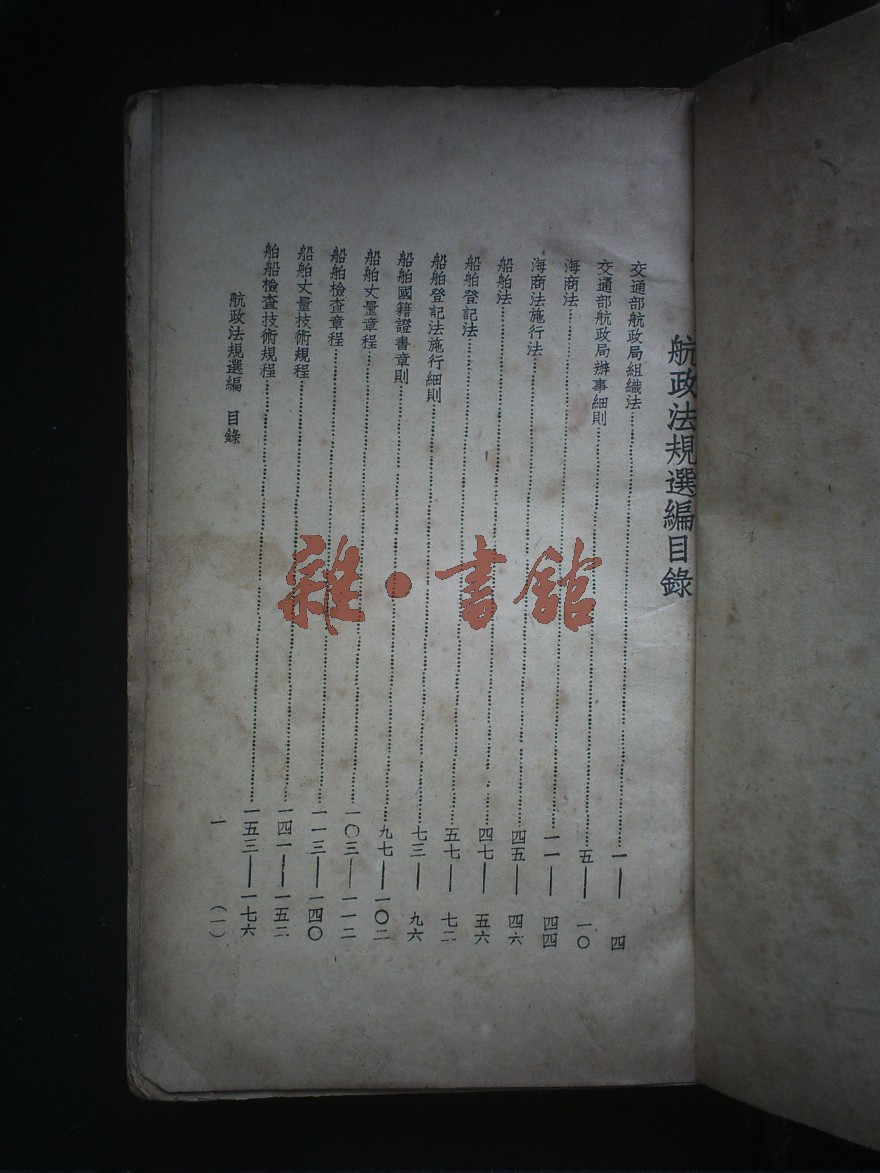 航政法規選編目錄
交通部航政局組織法……一——四
交通部航政局辦事細則……五——一〇
海商法……一一——四四
海商法施行法……四五——四六
船舶法……四七——五六
船舶登記法……五七——七二
船舶登記法施行細則……七三——九六
船舶國籍證書章則……九七——一〇二
船舶丈量章程……一〇三——一一二
船舶檢查章程……一一三——一四〇
船舶丈量技術規程……一四一——一五二
舶船檢查技術規程……一五三——一七六
航政法規選編 目錄 一 (一)
雜·書館